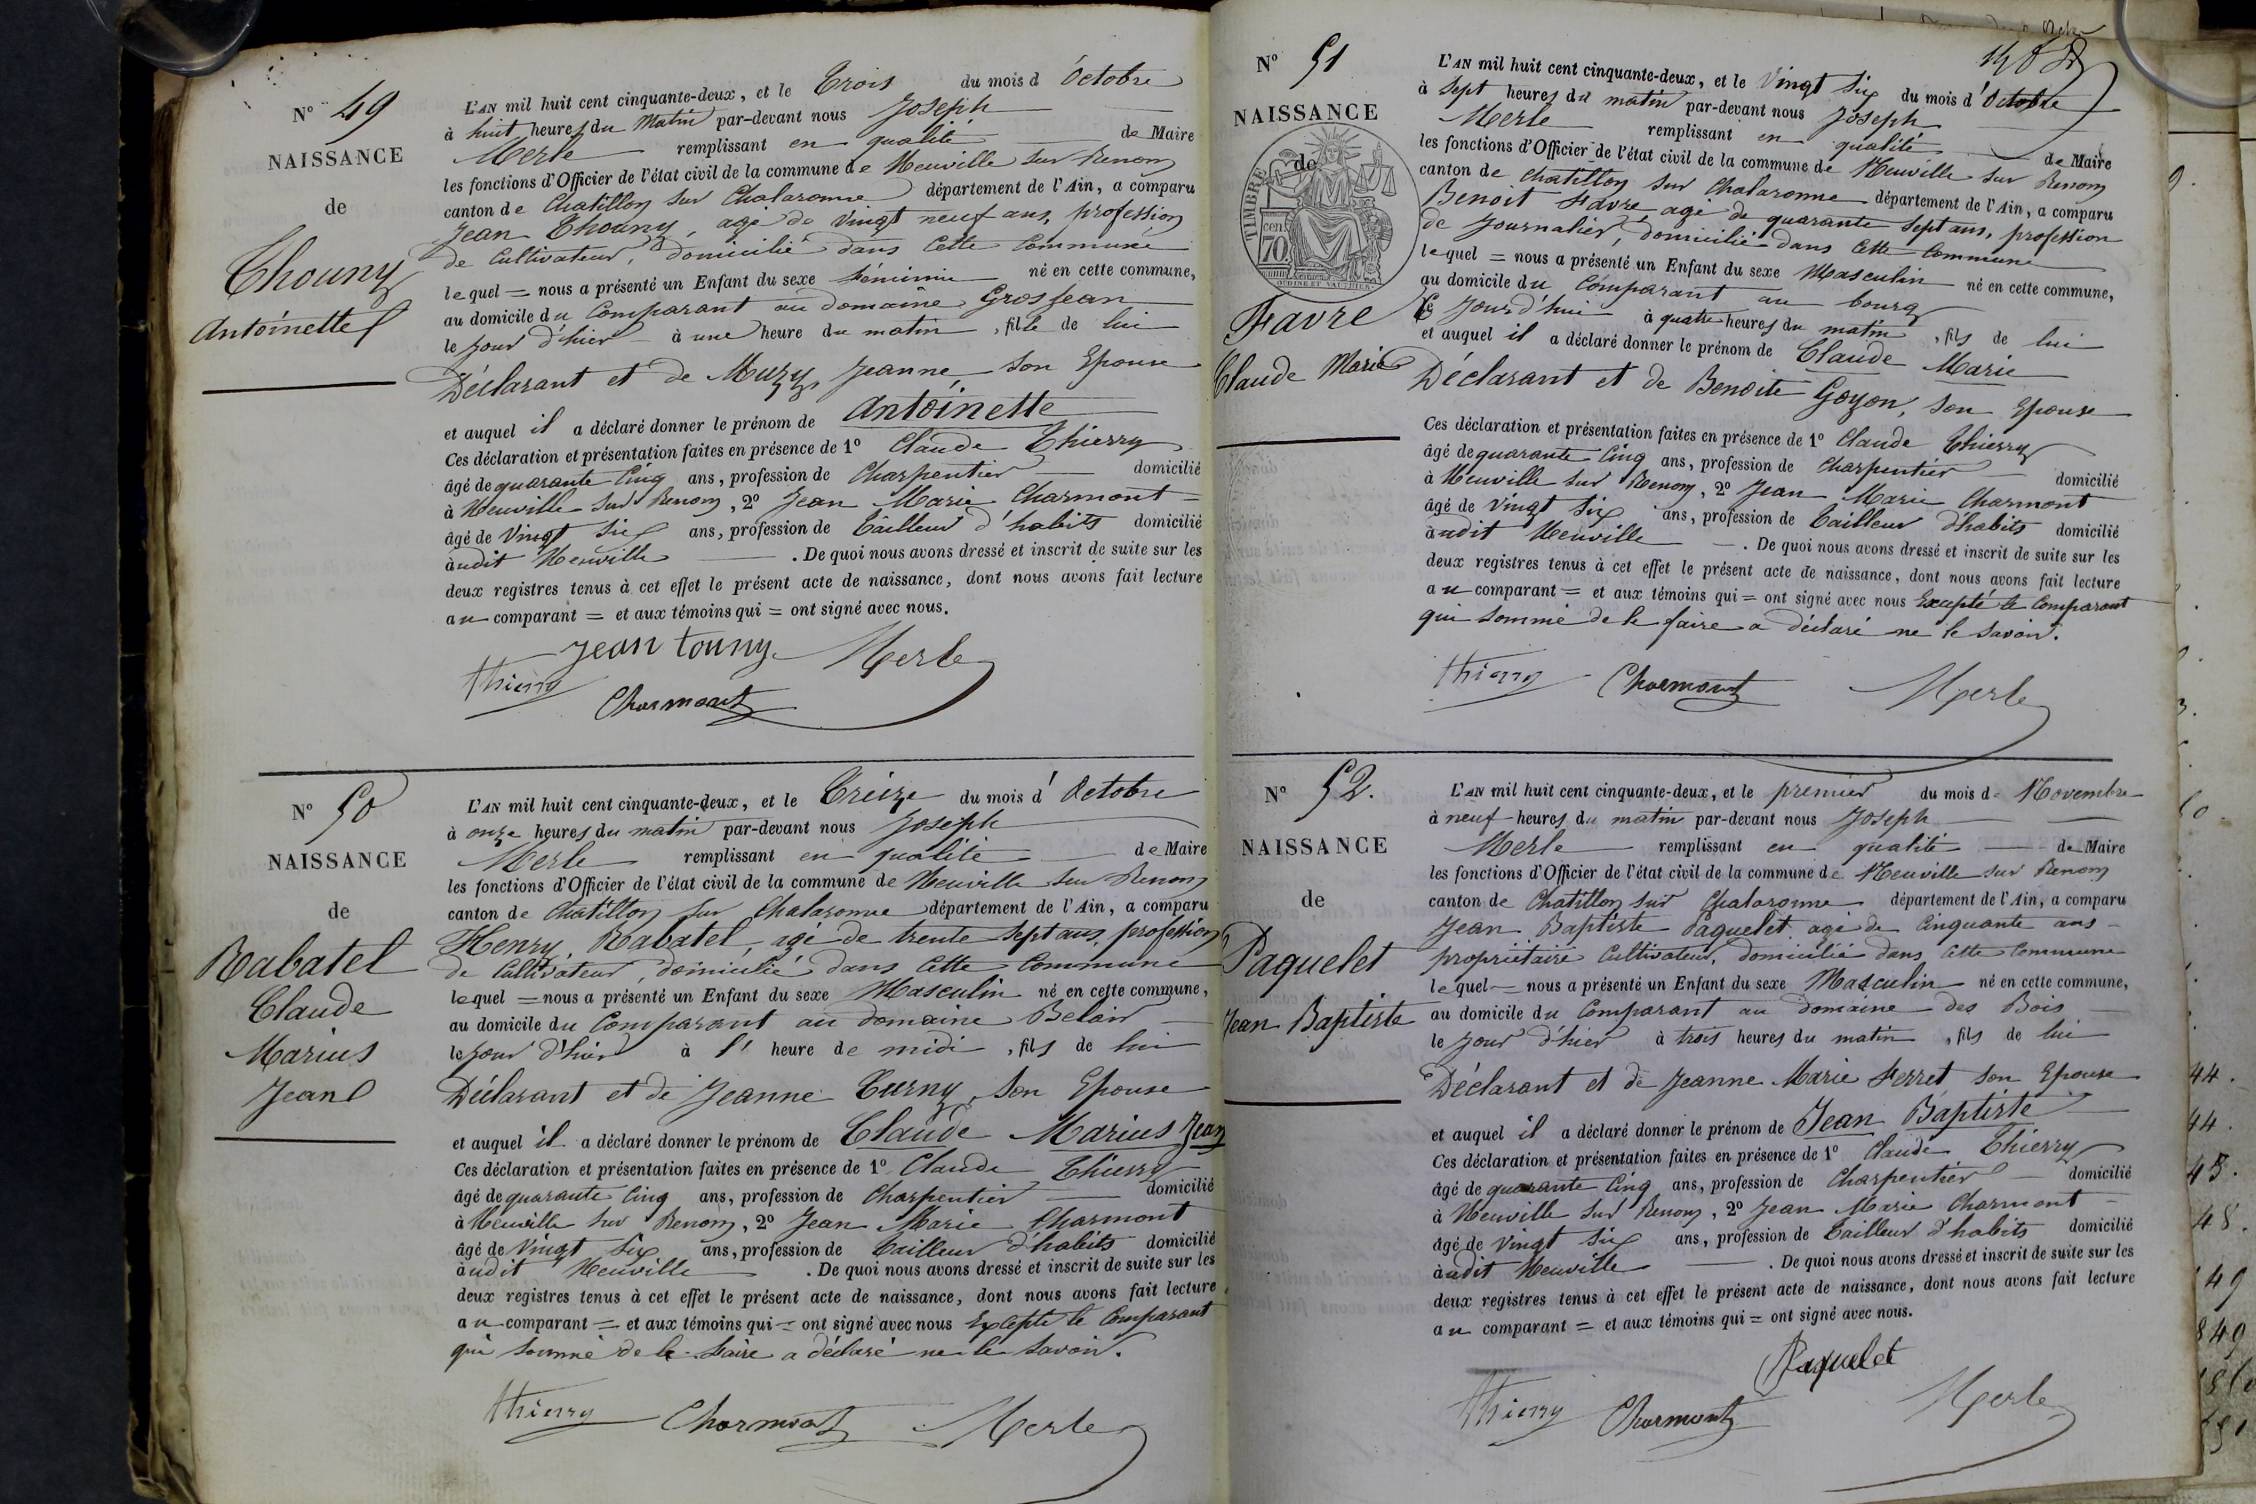 N° 49
NAISSANCE
de
Thouny
Antoinette
L'AN mil huit cent cinquante-deux, et le Trois du mois d'Octobre
à huit heures du Matin par-devant nous Joseph
Merle remplissant en qualité de Maire
les fonctions d'Officier de l'état civil de la commune de Neuville sur Renom
canton de Chatillon sur Chalaronne département de l'Ain, a comparu
Jean Thouny, agé de vingt neuf ans, profession
de Cultivateur, domicilié dans cette Commune
lequel = nous a présenté un Enfant du sexe féminin né en cette commune,
au domicile du Comparant au domaine Grosjean
le jour d'hier à une heure du matin, fille de lui
Déclarant et de Muzy, Jeanne, son Epouse
et auquel il a déclaré donner le prénom de Antoinette
Ces déclaration et présentation faites en présence de 1° Claude Thierry
âgé de quarante Cinq ans, profession de Charpentier domicilié
à Neuville sur Renom, 2° Jean Marie Charmont =
âgé de Vingt Six ans, profession de Tailleur d'habits domicilié
audit Neuville. De quoi nous avons dressé et inscrit de suite sur les
deux registres tenus à cet effet le présent acte de naissance, dont nous avons fait lecture
au comparant = et aux témoins qui = ont signé avec nous.
Jean touny Merle
thierry Charmont
N° 50
NAISSANCE
de
Rabatel
Claude
Marius
Jean
L'AN mil huit cent cinquante-deux, et le Treize du mois d'Octobre
à onze heures du matin par-devant nous Joseph
Merle remplissant en qualité de Maire
les fonctions d'Officier de l'état civil de la commune de Neuville sur Renom
canton de Chatillon sur Chalaronne département de l'Ain, a comparu
Henry Rabatel, agé de trente sept ans, profession
de Cultivateur, domicilié dans cette Commune
lequel = nous a présenté un Enfant du sexe Masculin né en cette commune,
au domicile du Comparant au domaine Belair
le jour d'hier à l' heure de midi, fils de lui
Déclarant et de Jeanne Curny, son Epouse
et auquel il a déclaré donner le prénom de Claude Marius Jean
Ces déclaration et présentation faites en présence de 1° Claude Thierry
âgé de quarante Cinq ans, profession de Charpentier domicilié
à Neuville sur Renom, 2° Jean Marie Charmont
âgé de Vingt Six ans, profession de tailleur d'habits domicilié
audit Neuville. De quoi nous avons dressé et inscrit de suite sur les
deux registres tenus à cet effet le présent acte de naissance, dont nous avons fait lecture
au comparant = et aux témoins qui = ont signé avec nous Excepté le Comparant
qui sommé de le faire a déclaré ne le savoir.
thierry Charmont Merle
N° 51
NAISSANCE
de
TIMBRE
cen.
70
OUDINE ET VAUTHIER
Favre
Claude Marie
L'AN mil huit cent cinquante-deux, et le Vingt Six du mois d'Octobre
à sept heures du matin par-devant nous Joseph
Merle remplissant en qualité de Maire
les fonctions d'Officier de l'état civil de la commune de Neuville sur Renom
canton de Chatillon sur Chalaronne département de l'Ain, a comparu
Benoit Favre agé de quarante sept ans, profession
de Journalier, domicilié dans cette Commune
lequel = nous a présenté un Enfant du sexe Masculin né en cette commune,
au domicile du Comparant au bourg
Ce Jourd'hui à quatre heures du matin, fils de lui
et auquel il a déclaré donner le prénom de Claude Marie
Déclarant et de Benoite Goyon, son Epouse
Ces déclaration et présentation faites en présence de 1° Claude Thierry
âgé de quarante Cinq ans, profession de Charpentier domicilié
à Neuville sur Renom, 2° Jean Marie Charmont
âgé de Vingt Six ans, profession de tailleur d'habits domicilié
audit Neuville. De quoi nous avons dressé et inscrit de suite sur les
deux registres tenus à cet effet le présent acte de naissance, dont nous avons fait lecture
au comparant = et aux témoins qui = ont signé avec nous Excepté le Comparant
qui sommé de le faire a déclaré ne le savoir.
thierry Charmont Merle
N° 52.
NAISSANCE
de
Paquelet
Jean Baptiste
L'AN mil huit cent cinquante-deux, et le premier du mois de Novembre
à neuf heures du matin par-devant nous Joseph
Merle remplissant en qualité de Maire
les fonctions d'Officier de l'état civil de la commune de Neuville sur Renom
canton de Chatillon sur Chalaronne département de l'Ain, a comparu
Jean Baptiste Paquelet agé de Cinquante ans
propriétaire Cultivateur, domicilié dans cette Commune
lequel = nous a présenté un Enfant du sexe Masculin né en cette commune,
au domicile du Comparant au domaine des Bois
le jour d'hier à trois heures du matin, fils de lui
Déclarant et de Jeanne Marie Ferret son Epouse
et auquel il a déclaré donner le prénom de Jean Baptiste
Ces déclaration et présentation faites en présence de 1° Claude Thierry
âgé de quarante Cinq ans, profession de Charpentier domicilié
à Neuville sur Renom, 2° Jean Marie Charmont
âgé de Vingt Six ans, profession de Tailleur d'habits domicilié
audit Neuville. De quoi nous avons dressé et inscrit de suite sur les
deux registres tenus à cet effet le présent acte de naissance, dont nous avons fait lecture
au comparant = et aux témoins qui = ont signé avec nous.
Paquelet
thierry Charmont Merle
44.
44.
45.
48.
49
849